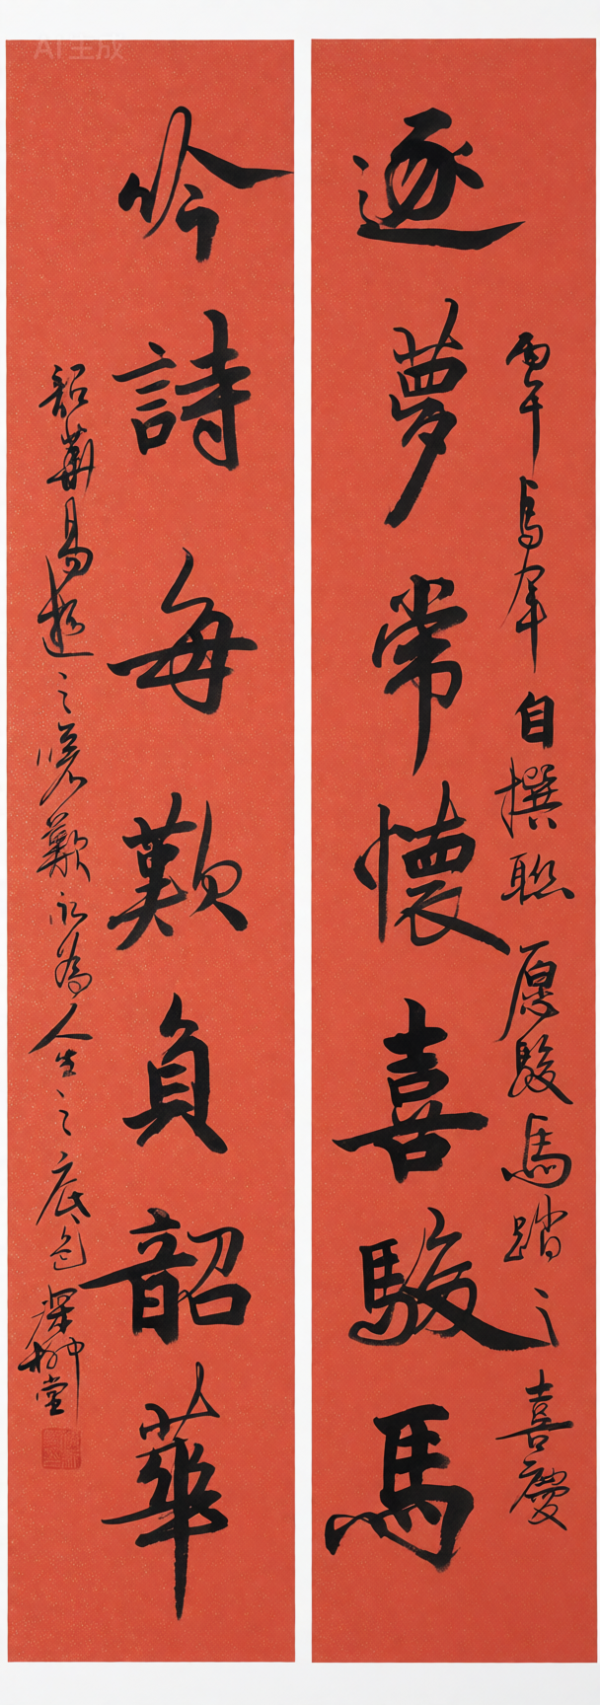 逐夢常懷喜駿馬
丙午馬年自撰聯愿駿馬踏之喜慶
吟詩每歎負韶華
韶華易逝之嗟歎永為人生之底色
AI生成